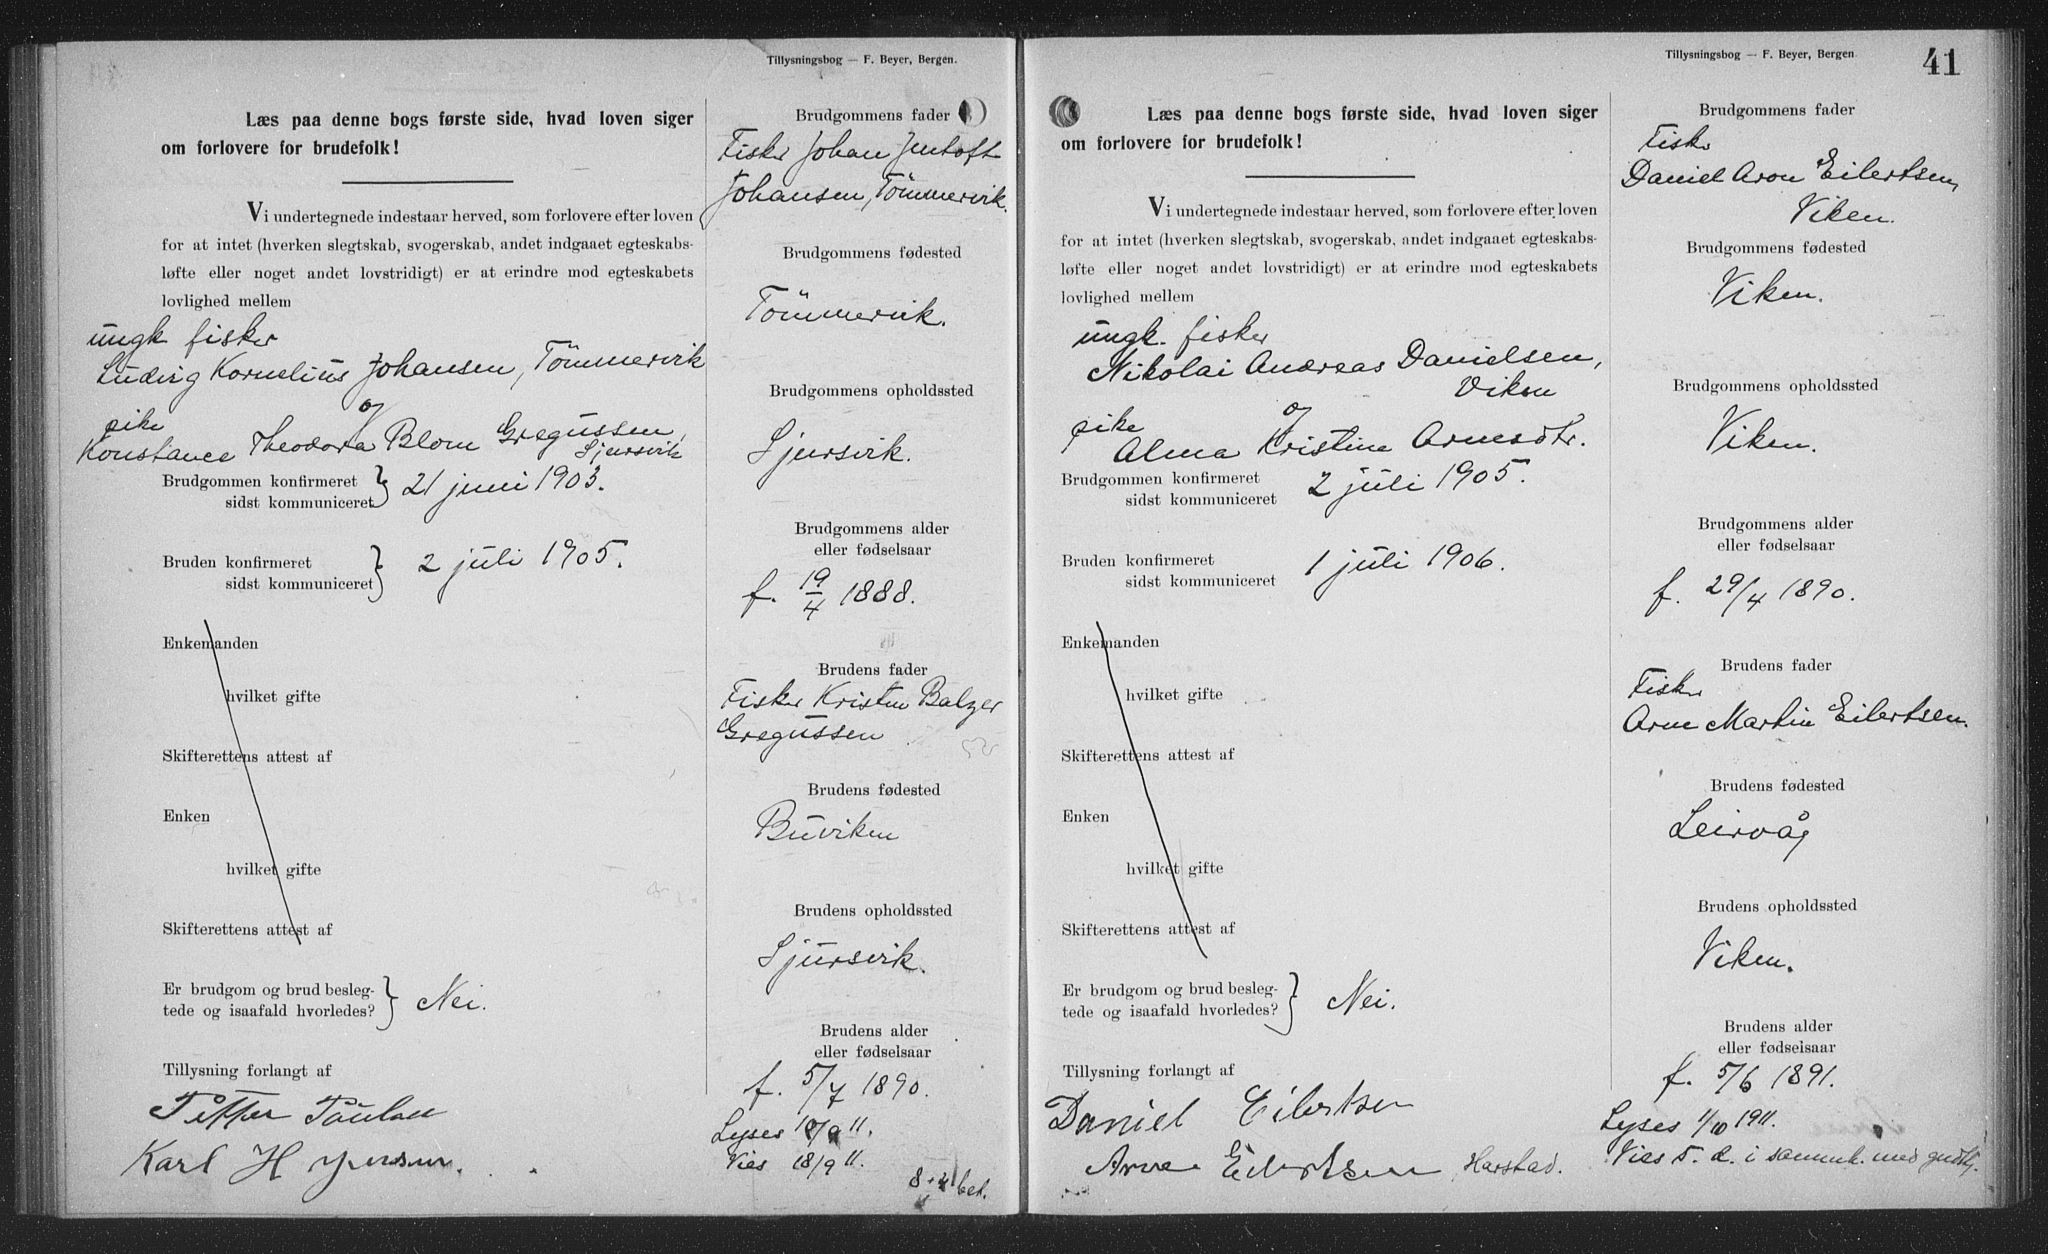 Tillysningsbog — F. Beyer, Bergen.
Læs paa denne bogs første side, hvad loven siger
om forlovere for brudefolk!
Vi undertegnede indestaar herved, som forlovere efter loven
for at intet (hverken slegtskab, svogerskab, andet indgaaet egteskabs-
løfte eller noget andet lovstridigt) er at erindre mod egteskabets
lovlighed mellem
ungk. fisker
Ludvig Kornelius Johansen, Tömmervik
og
pike
Konstance Theodora Blom Gregussen,
Sjursvik
Brudgommen konfirmeret
sidst kommuniceret } 21 juni 1903.
Bruden konfirmeret
sidst kommuniceret } 2 juli 1905.
Enkemanden
hvilket gifte
Skifterettens attest af
Enken
hvilket gifte
Skifterettens attest af
Er brudgom og brud besleg-
tede og isaafald hvorledes? } Nei.
Tillysning forlangt af
Petter Paulsen
Karl H
Brudgommens fader
Fisker Johan Jentoft
Johansen, Tömmervik.
Brudgommens fødested
Tömmervik.
Brudgommens opholdssted
Sjursvik.
Brudgommens alder
eller fødselsaar
f. 19/4 1888.
Brudens fader
Fisker Kristen Balzer
Gregussen
Brudens fødested
Buviken
Brudens opholdssted
Sjursvik.
Brudens alder
eller fødselsaar
f. 5/7 1890.
Lyses 10/9 11.
Vies 18/9 11.
bet.
Tillysningsbog — F. Beyer, Bergen.
41
Læs paa denne bogs første side, hvad loven siger
om forlovere for brudefolk!
Vi undertegnede indestaar herved, som forlovere efter loven
for at intet (hverken slegtskab, svogerskab, andet indgaaet egteskabs-
løfte eller noget andet lovstridigt) er at erindre mod egteskabets
lovlighed mellem
ungk. fisker
Nikolai Andreas Danielsen,
Viken
og
pike
Alma Kristine Arnesdtr.
Brudgommen konfirmeret
sidst kommuniceret 2 juli 1905.
Bruden konfirmeret
sidst kommuniceret 1 juli 1906.
Enkemanden
hvilket gifte
Skifterettens attest af
Enken
hvilket gifte
Skifterettens attest af
Er brudgom og brud besleg-
tede og isaafald hvorledes? } Nei.
Tillysning forlangt af
Daniel Eilertsen
Arne Eilertsen Harstad.
Brudgommens fader
Fisker
Daniel Aron Eilertsen,
Viken.
Brudgommens fødested
Viken.
Brudgommens opholdssted
Viken.
Brudgommens alder
eller fødselsaar
f. 29/4 1890.
Brudens fader
Fisker
Arne Martin Eilertsen.
Brudens fødested
Leirvåg
Brudens opholdssted
Viken.
Brudens alder
eller fødselsaar
f. 5/6 1891.
Lyses 1/10 1911.
Vies s. d. i sammenh. med gudstj.